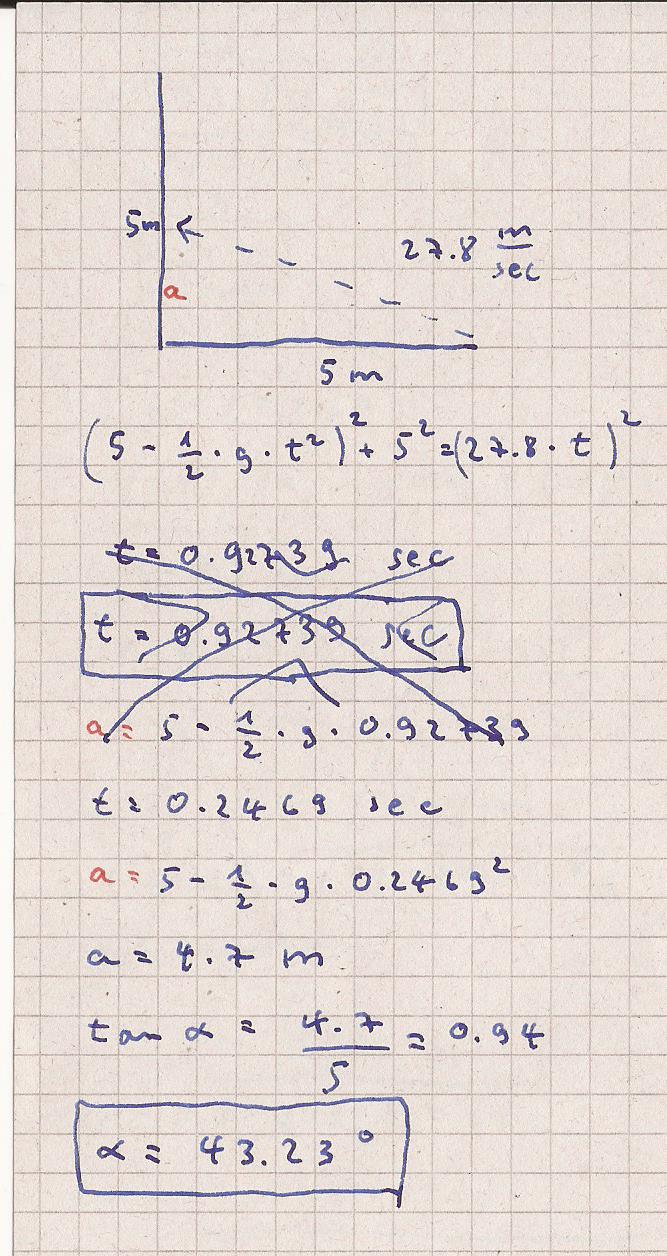 5m
27.8 m/sec
a
5 m
(5 - 1/2 · g · t²)² + 5² = (27.8 · t)²
t = 0.92739 sec
t = 0.92739 sec
a = 5 - 1/2 · g · 0.92739
t = 0.2469 sec
a = 5 - 1/2 · g · 0.2469²
a = 4.7 m
tan α = 4.7/5 = 0.94
α = 43.23°